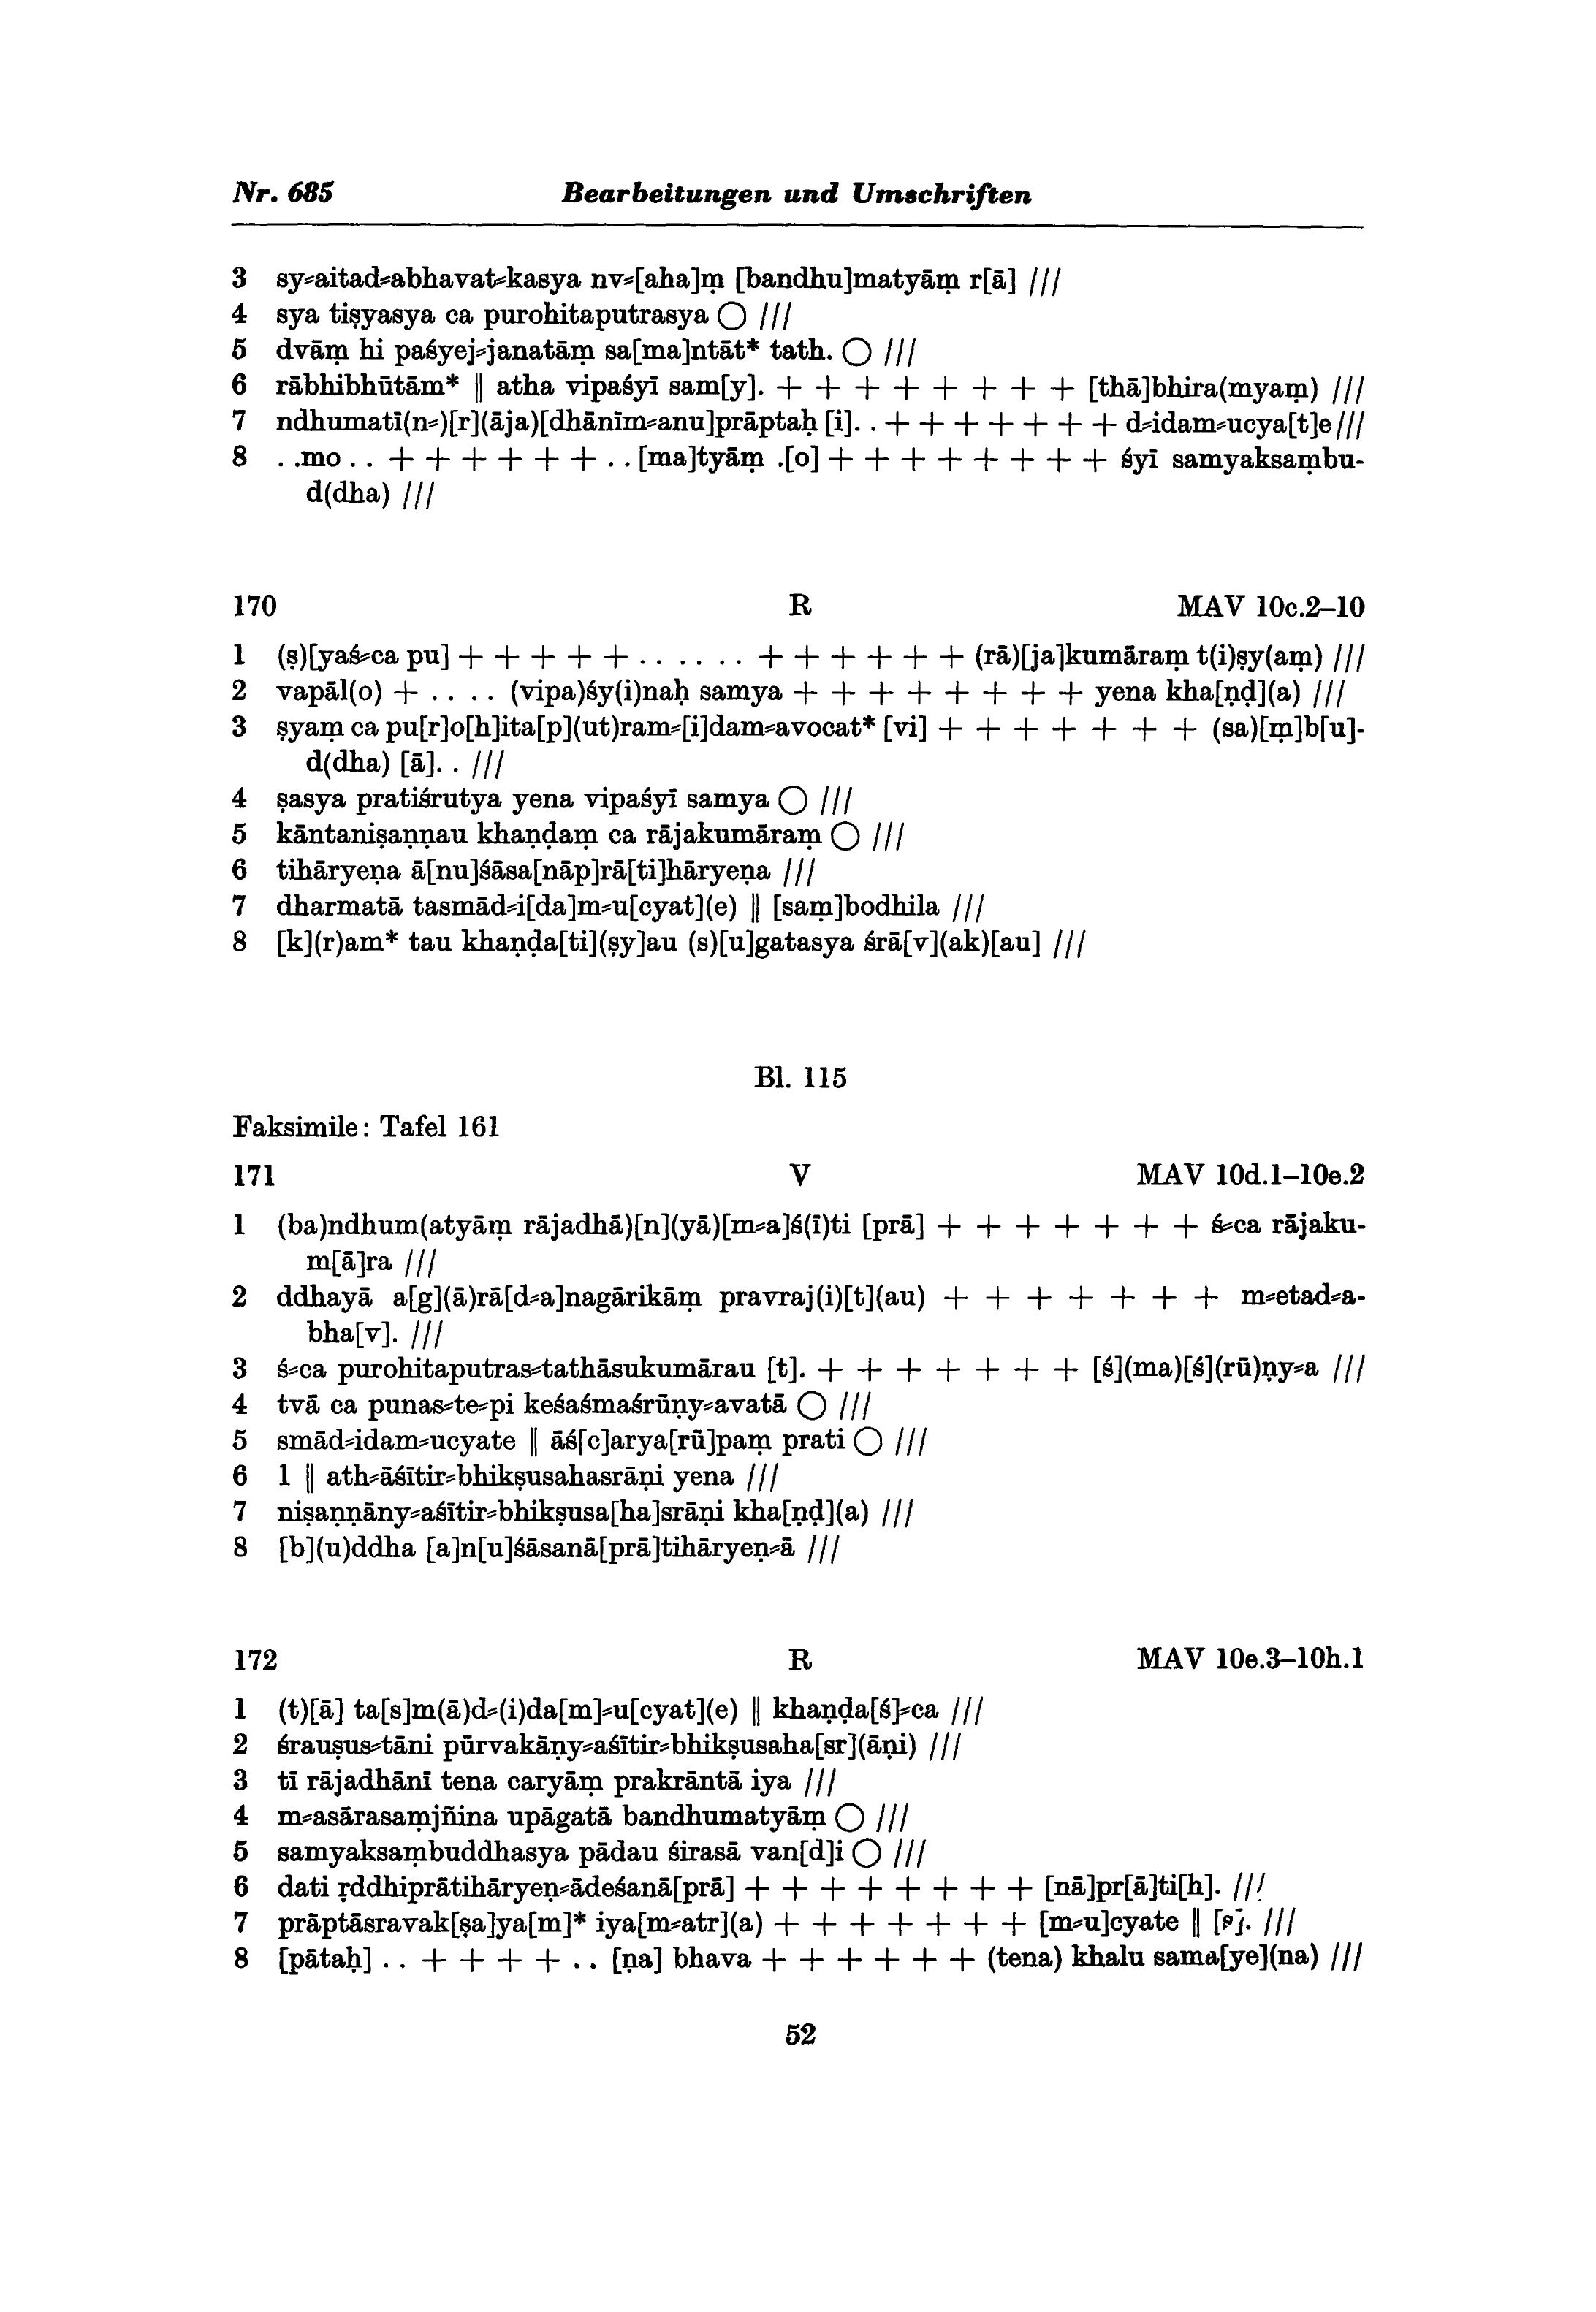 Nr. 685 Bearbeitungen und Umschriften
3 sy⸗aitad⸗abhavat⸗kasya nv⸗[aha]ṃ [bandhu]matyāṃ r[ā] ///
4 sya tiṣyasya ca purohitaputrasya ◯ ///
5 dvāṃ hi paśyej⸗janatāṃ sa[ma]ntāt* tath. ◯ ///
6 rābhibhūtām* || atha vipaśyī sam[y]. + + + + + + + + [thā]bhira(myaṃ) ///
7 ndhumatī(n⸗)[r](āja)[dhānīm⸗anu]prāptaḥ [i]. . + + + + + + + d⸗idam⸗ucya[t]e ///
8 . .mo . . + + + + + + . . [ma]tyāṃ .[o] + + + + + + + + śyī samyaksaṃbu-
d(dha) ///
170 R MAV 10c.2–10
1 (ṣ)[yaś⸗ca pu] + + + + + . . . . . . + + + + + + (rā)[ja]kumāraṃ t(i)ṣy(aṃ) ///
2 vapāl(o) + . . . . (vipa)śy(i)naḥ samya + + + + + + + + yena kha[ṇḍ](a) ///
3 ṣyaṃ ca pu[r]o[h]ita[p](ut)ram⸗[i]dam⸗avocat* [vi] + + + + + + + (sa)[ṃ]b[u]-
d(dha) [ā]. . ///
4 ṣasya pratiśrutya yena vipaśyī samya ◯ ///
5 kāntaniṣaṇṇau khaṇḍaṃ ca rājakumāraṃ ◯ ///
6 tihāryeṇa ā[nu]śāsa[nāp]rā[ti]hāryeṇa ///
7 dharmatā tasmād⸗i[da]m⸗u[cyat](e) || [saṃ]bodhila ///
8 [k](r)am* tau khaṇḍa[ti](ṣy]au (s)[u]gatasya śrā[v](ak)[au] ///
Bl. 115
Faksimile: Tafel 161
171 V MAV 10d.1–10e.2
1 (ba)ndhum(atyāṃ rājadhā)[n](yā)[m⸗a]ś(ī)ti [prā] + + + + + + + ś⸗ca rājaku-
m[ā]ra ///
2 ddhayā a[g](ā)rā[d⸗a]nagārikāṃ pravraj(i)[t](au) + + + + + + + m⸗etad⸗a-
bha[v]. ///
3 ś⸗ca purohitaputras⸗tathāsukumārau [t]. + + + + + + + [ś](ma)[ś](rū)ṇy⸗a ///
4 tvā ca punas⸗te⸗pi keśaśmaśrūṇy⸗avatā ◯ ///
5 smād⸗idam⸗ucyate || āś[c]arya[rū]paṃ prati ◯ ///
6 1 || ath⸗āśītir⸗bhikṣusahasrāṇi yena ///
7 niṣaṇṇāny⸗aśītir⸗bhikṣusa[ha]srāṇi kha[ṇḍ](a) ///
8 [b](u)ddha [a]n[u]śāsanā[prā]tihāryeṇ⸗ā ///
172 R MAV 10e.3–10h.1
1 (t)[ā] ta[s]m(ā)d⸗(i)da[m]⸗u[cyat](e) || khaṇḍa[ś]⸗ca ///
2 śrauṣus⸗tāni pūrvakāṇy⸗aśītir⸗bhikṣusaha[sr](āṇi) ///
3 tī rājadhānī tena caryāṃ prakrāntā iya ///
4 m⸗asārasaṃjñina upāgatā bandhumatyāṃ ◯ ///
5 samyaksaṃbuddhasya pādau śirasā van[d]i ◯ ///
6 dati ṛddhiprātihāryeṇ⸗ādeśanā[prā] + + + + + + + + [nā]pr[ā]ti[h]. ///
7 prāptāsravak[ṣa]ya[m]* iya[m⸗atr](a) + + + + + + + [m⸗u]cyate || ///
8 [pātaḥ] . . + + + + . . [ṇa] bhava + + + + + + (tena) khalu sama[ye](na) ///
52